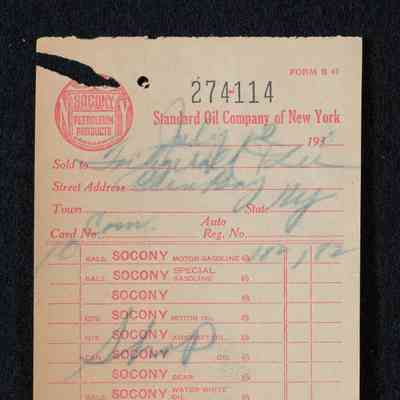 FORM B 41
274114
SOCONY
PETROLEUM
PRODUCTS
Standard Oil Company of New York
July 12 193
Sold to Fitzgerald & Lee
Street Address Glen Cove
Town State NY
Card No. Com. Auto Reg. No.
10 GALS. SOCONY MOTOR GASOLINE @ 182 1 82
GALS. SOCONY SPECIAL GASOLINE @
SOCONY @
QTS. SOCONY MOTOR OIL @
QTS. SOCONY AIRCRAFT OIL @
CAN SOCONY OIL @
SOCONY GEAR @
GALS. SOCONY WATER WHITE OIL @